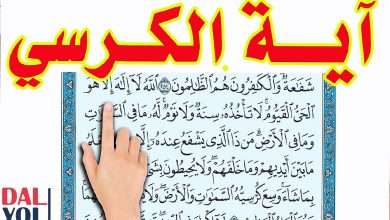 آية الكرسي
شَفَٰعَةٌ وَالْكَٰفِرُونَ هُمُ الظَّٰلِمُونَ ٢٥٤ اللَّهُ لَا إِلَٰهَ إِلَّا هُوَ
الْحَيُّ الْقَيُّومُ لَا تَأْخُذُهُ سِنَةٌ وَلَا نَوْمٌ لَّهُ مَا فِي السَّمَٰوَٰتِ
وَمَا فِي الْأَرْضِ مَن ذَا الَّذِي يَشْفَعُ عِندَهُ إِلَّا
مَا بَيْنَ أَيْدِيهِمْ وَمَا خَلْفَهُمْ وَلَا يُحِيطُونَ
بِمَا شَاءَ وَسِعَ كُرْسِيُّهُ السَّمَٰوَٰتِ وَالْأَرْضَ وَلَا
DAL
YOL